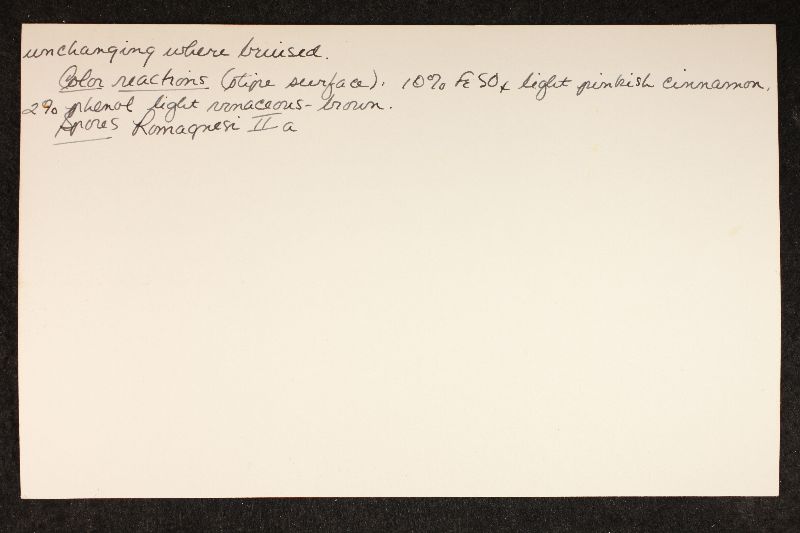 unchanging where bruised.
Color reactions (stipe surface). 10% FeSO4 light pinkish cinnamon,
2% phenol light vinaceous-brown.
Spores Romagnesi II a